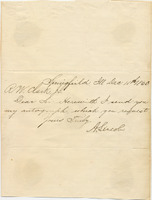 Springfield, Ills. Dec. 11, 1860
R. W.
Dear Sir Herewith I send you
my autograph, which you request
Yours Truly
A. Lincoln